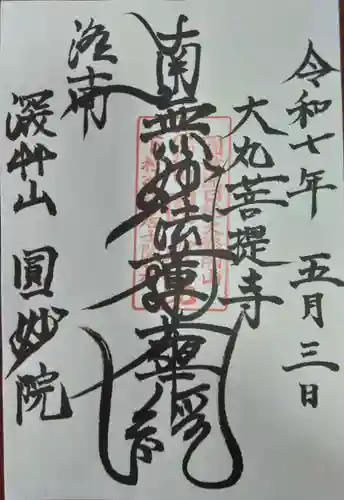 令和七年 五月三日
大丸菩提寺
南無妙法蓮華経
洛南
深艸山 圓妙院